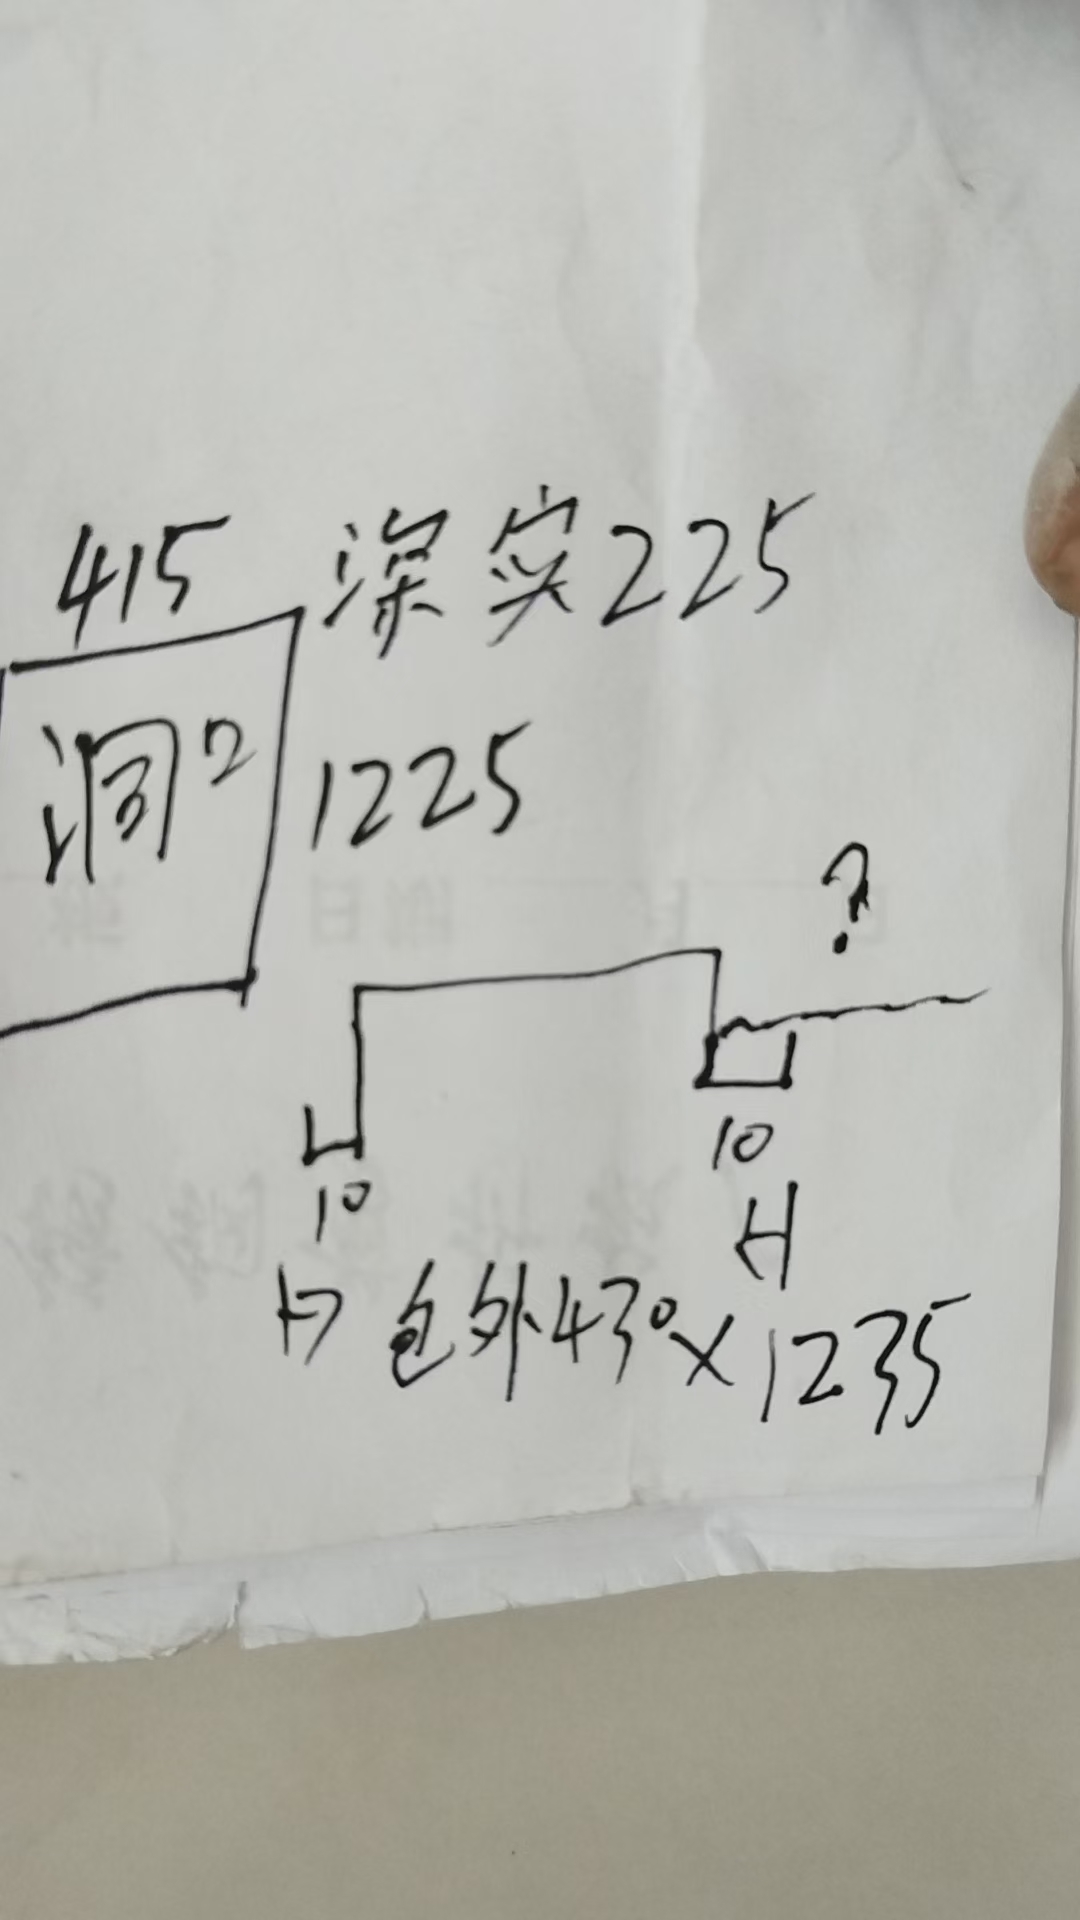 415 深实225
洞口 1225
?
10
10
包外430×1235